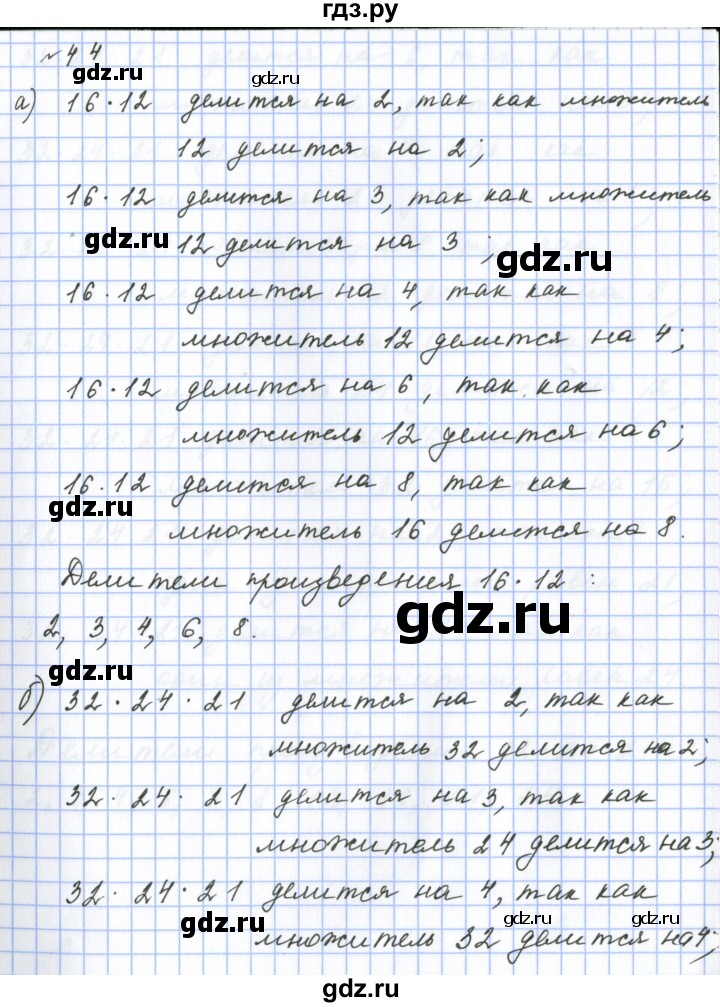 гдз.ру
№ 44
gdz.ru
а) 16·12 делится на 2, так как множитель
12 делится на 2;
16·12 делится на 3, так как множитель
gdz.ru 12 делится на 3 ;
gdz.ru
16·12 делится на 4, так как
множитель 12 делится на 4;
16·12 делится на 6, так как
множитель 12 делится на 6;
16·12 делится на 8, так как
gdz.ru
множитель 16 делится на 8.
Делители произведения 16·12 :
gdz.ru
2, 3, 4, 6, 8.
gdz.ru
б) 32·24·21 делится на 2, так как
множитель 32 делится на 2;
32·24·21 делится на 3, так как
множитель 24 делится на 3;
32·24·21 делится на 4, так как
gdz.ru gdz.ru gdz.ru
множитель 32 делится на 4;
gdz.ru